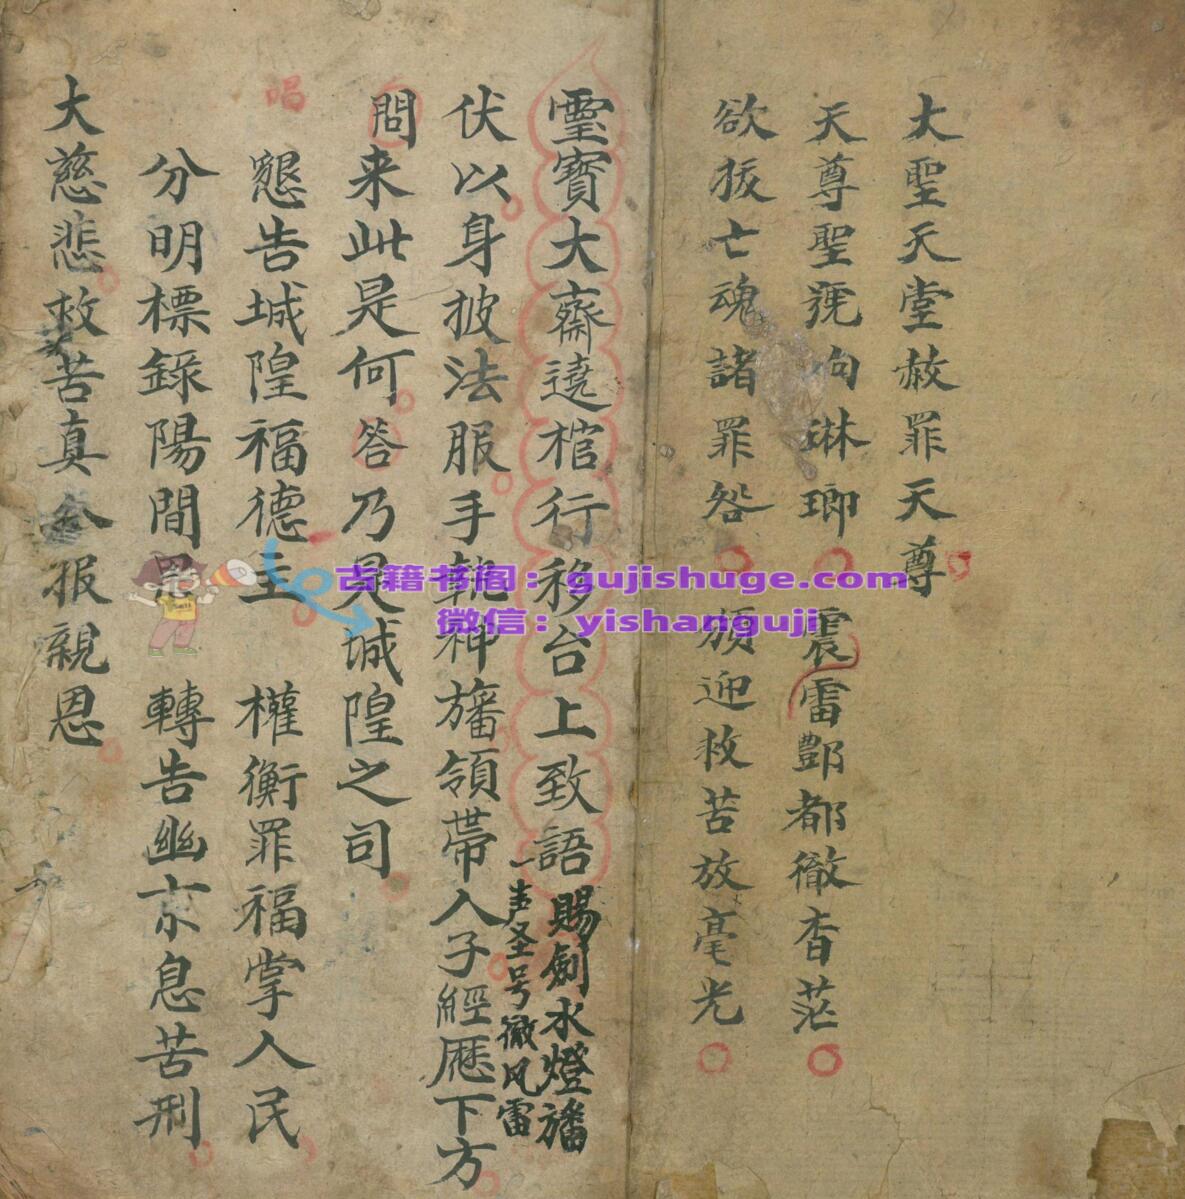 大聖天堂赦罪天尊
天尊聖號向琳瑯 震雷酆都徹杳茫
欲拔亡魂諸罪咎 頒迎救苦放毫光
靈寶大齋遶棺行移台上致語 賜劍水燈旛
一声圣号徹风雷
伏以身披法服手執神旛領帶人子經歷下方
問来此是何答乃是城隍之司
唱
懇告城隍福德主 權衡罪福掌人民
分明標錄陽間 轉告幽京息苦刑
大慈悲救苦真 报親恩
古籍书阁：gujishuge.com
微信：yishanguji